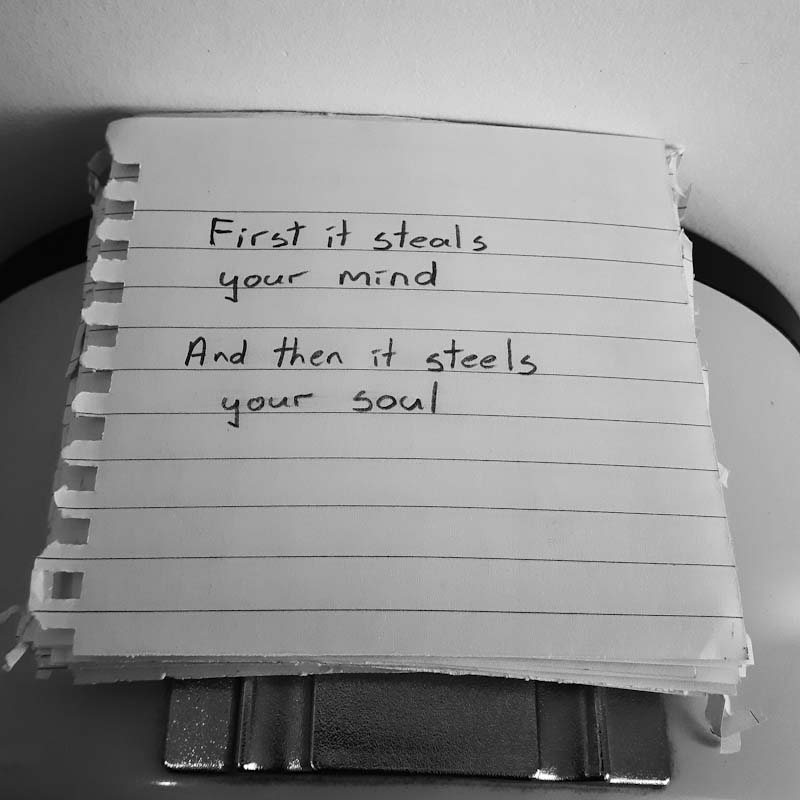 First it steals
your mind
And then it steels
your soul